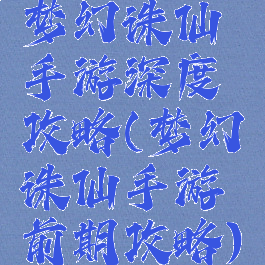 梦幻诛仙
手游深度
攻略(梦幻
诛仙手游
前期攻略)